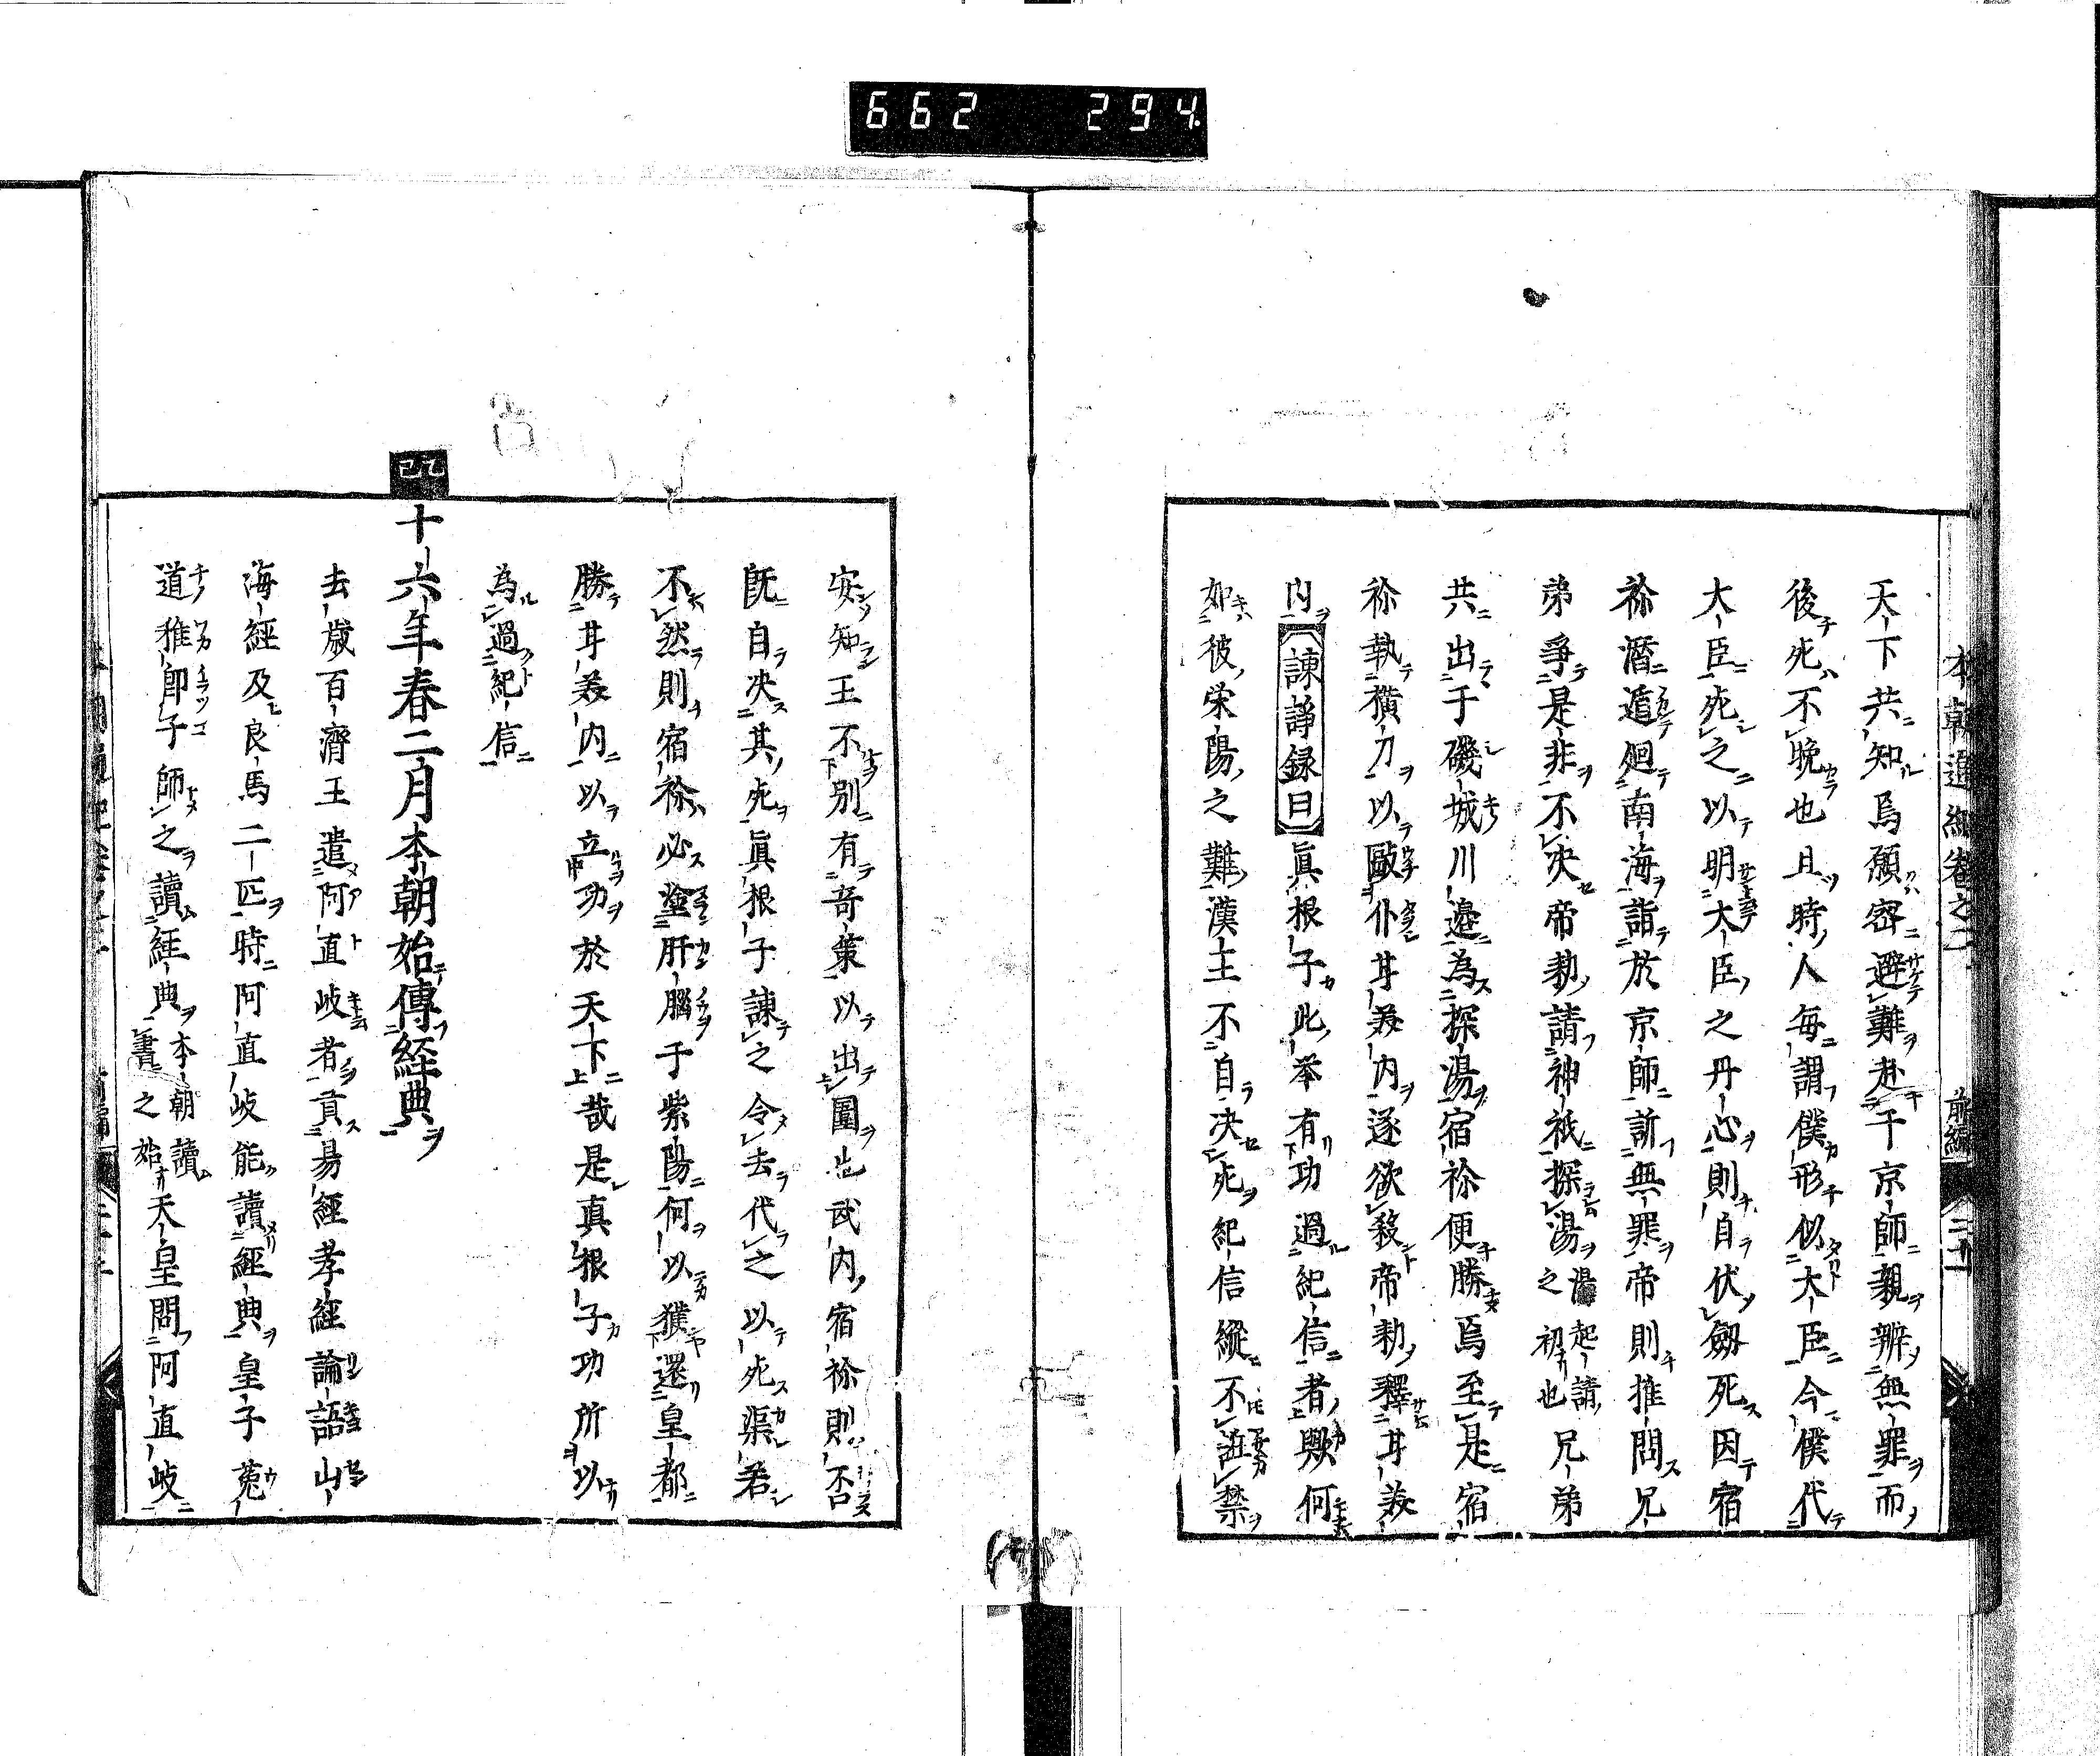 662 294
本朝通紀卷之二 前編
天下共知焉願密避難赴于京師親辨無罪而
後死不晩也且時人毎謂僕形似大臣今僕代
大臣死之以明大臣之丹心則自伏劔死因宿
祢潛遁廻南海詣於京師訴無罪帝則推問兄
弟爭是非不決帝勅請神祇探湯湯起請之初也兄弟
共出于磯城川邉為探湯宿祢便勝焉至是宿
祢執横刀以毆仆甘美内遂欲殺帝勅釋甘美
内諫諍録曰眞根子此挙有功過紀信者歟何
如彼栄陽之難漢王不自決死紀信縱不誑禁
安知王不別有奇策以出圍也武内宿祢則否
既自决其死眞根子諫之令去代之以死渠若
不然則宿祢必塗肝腦于紫陽何以獲還皇都
勝甘美内以立功於天下哉是真根子功所以
為過紀信
乙巳
十六年春二月本朝始傳経典
去歳百濟王遣阿直岐者貢易經孝經論語山
海經及良馬二匹時阿直岐能讀經典皇子菟
道稚郎子師之讀経典本朝讀書之始天皇問阿直岐